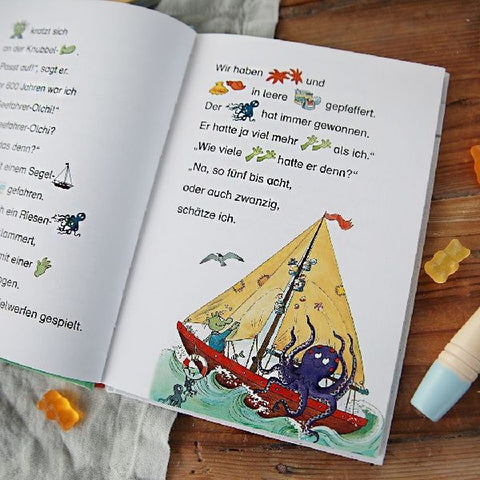 kratzt sich
an der Knubbel-
Passt auf!", sagt er.
or 600 Jahren war ich
eefahrer-Olchi!"
eefahrer-Olchi?
as denn?"
t einem Segel-
gefahren.
h ein Riesen-
klammert,
mit einer
ogen.
elwerfen gespielt.
Wir haben und
in leere gepfeffert.
Der hat immer gewonnen.
Er hatte ja viel mehr als ich."
"Wie viele hatte er denn?"
„Na, so fünf bis acht,
oder auch zwanzig,
schätze ich.